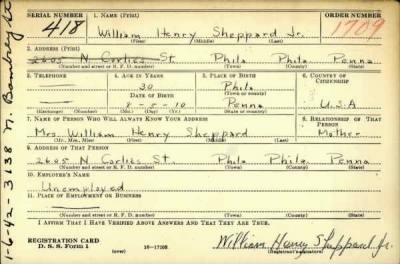 SERIAL NUMBER
1. NAME (Print)
ORDER NUMBER
418
William Henry Sheppard Jr.
1709
(First) (Middle) (Last)
2. ADDRESS (Print)
2605 N. Corlies St. Phila Phila Penna
(Number and street or R. F. D. number) (Town) (County) (State)
3. TELEPHONE
4. AGE IN YEARS
5. PLACE OF BIRTH
6. COUNTRY OF CITIZENSHIP
30
Phila
DATE OF BIRTH
(Town or county)
8-5-10
Penna
U.S.A
(Exchange) (Number)
(Mo.) (Day) (Yr.)
(State or country)
7. NAME OF PERSON WHO WILL ALWAYS KNOW YOUR ADDRESS
8. RELATIONSHIP OF THAT PERSON
Mrs. William Henry Sheppard
Mother
(Mr., Mrs., Miss) (First) (Middle) (Last)
9. ADDRESS OF THAT PERSON
2605 N Corlies St. Phila Phila. Penna
(Number and street or R. F. D. number) (Town) (County) (State)
10. EMPLOYER'S NAME
Unemployed
11. PLACE OF EMPLOYMENT OR BUSINESS
(Number and street or R. F. D. number) (Town) (County) (State)
I AFFIRM THAT I HAVE VERIFIED ABOVE ANSWERS AND THAT THEY ARE TRUE.
REGISTRATION CARD
D. S. S. Form 1
(over)
16—17105
William Henry Sheppard Jr.
(Registrant's signature)
1-6-42-3138 N.